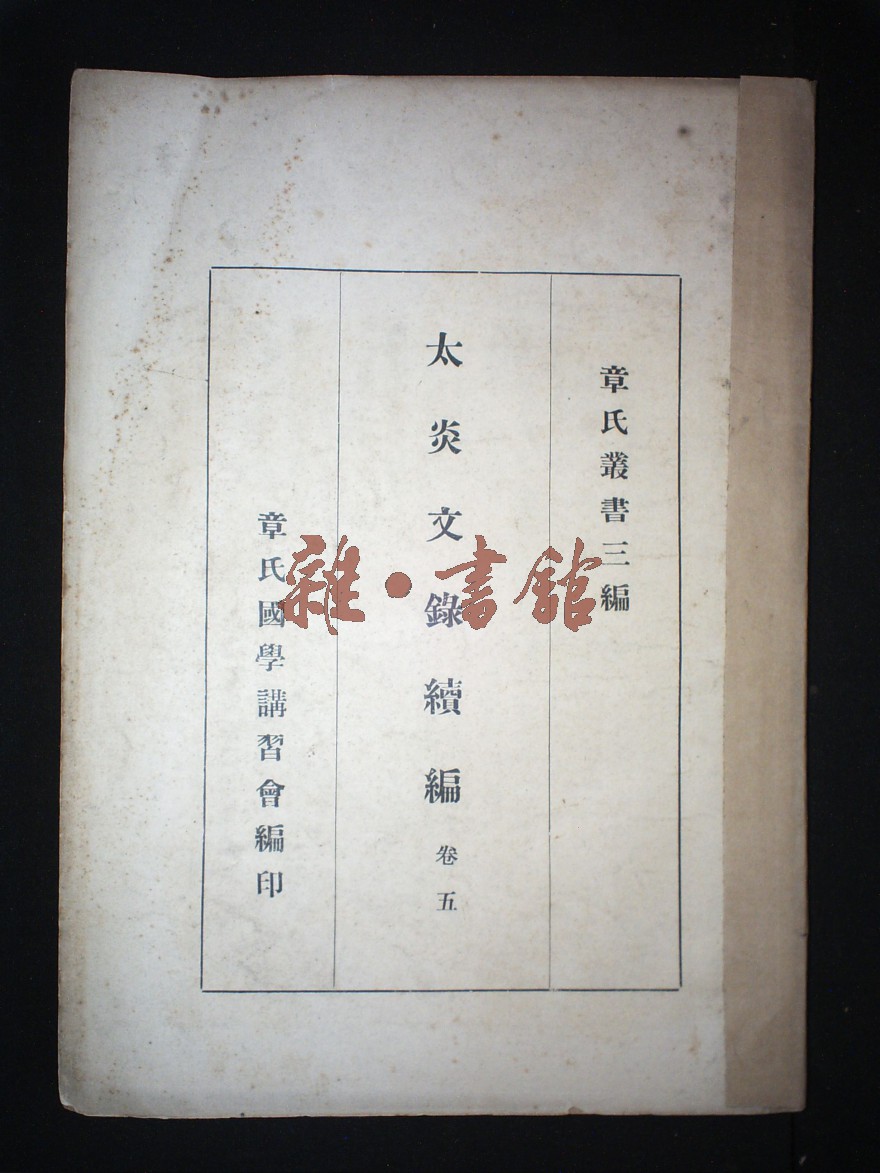 章氏叢書三編
太炎文錄續編 卷五
章氏國學講習會編印
雜·書館